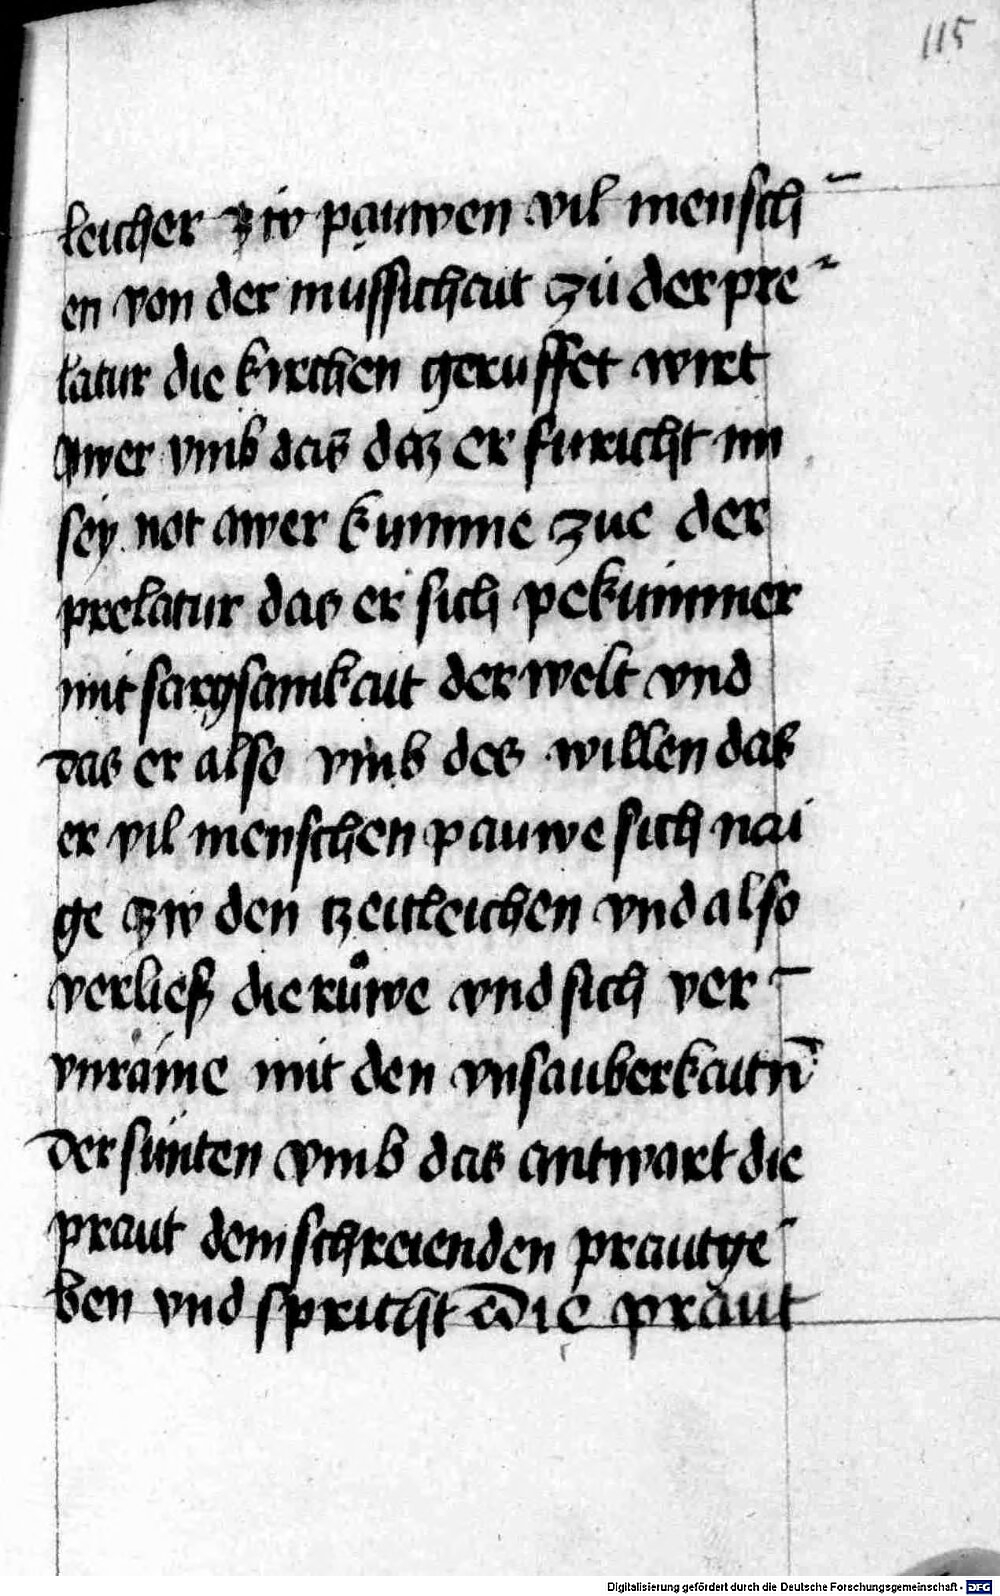 115
leicher ziw pauwen vil mensch¯
en von der mussichait zü der pre¯
latur die kirchen geruffet wirt
awer vmb das daz er furicht im
sey not awer kumme zue der
prelatur das er sich pekümmer
mit sargsamkait der welt vnd
das er also vmb des willen das
er vil menschen pauwe sich nai
ge ziw den tzeitleichen vnd also
verlies die ruͦwe vnd sich ver¯
vnräine mit den vnsauberkaitn̄
der sünten vmb das antwart die
praut dem schreienden prautge¯
ben vnd spricht die praut
Digitalisierung gefördert durch die Deutsche Forschungsgemeinschaft - DFG